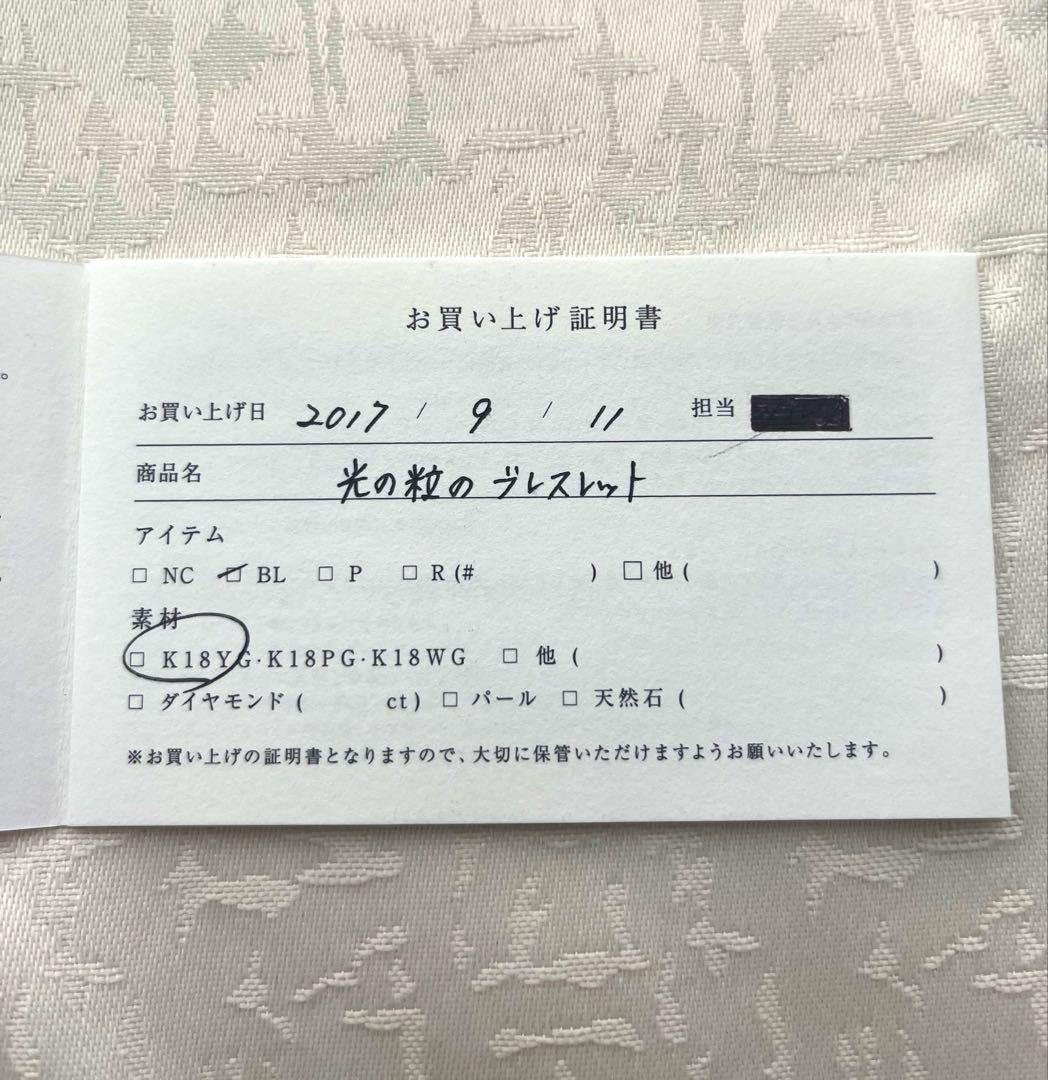 お買い上げ証明書
お買い上げ日 2017 / 9 / 11 担当
商品名 光の粒のブレスレット
アイテム
□ NC □ BL □ P □ R (# ) □ 他 ( )
素材
□ K18YG·K18PG·K18WG □ 他 ( )
□ ダイヤモンド ( ct ) □ パール □ 天然石 ( )
※お買い上げの証明書となりますので、大切に保管いただけますようお願いいたします。
。